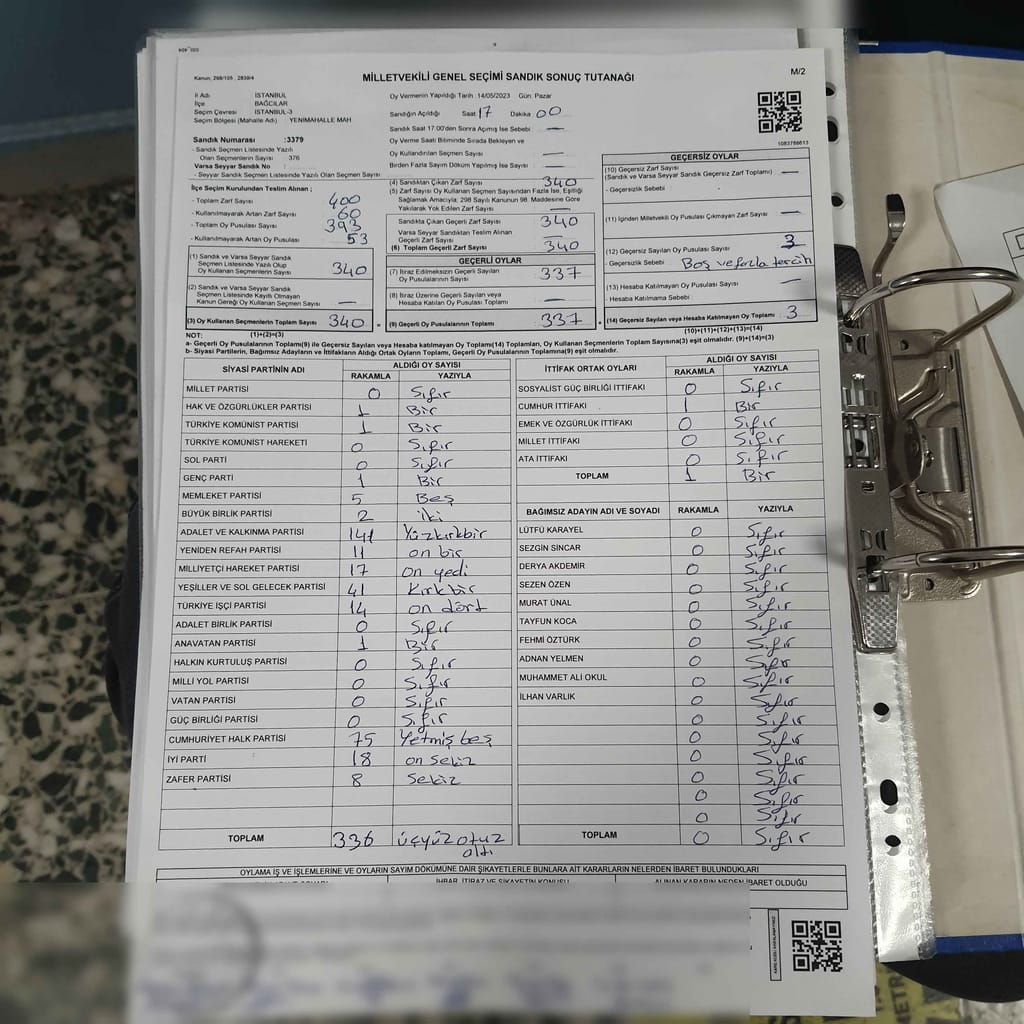 Kanun; 298/105 , 2839/4
MİLLETVEKİLİ GENEL SEÇİMİ SANDIK SONUÇ TUTANAĞI
M/2
İl Adı : İSTANBUL
İlçe : BAĞCILAR
Seçim Çevresi : İSTANBUL-3
Seçim Bölgesi (Mahalle Adı) : YENİMAHALLE MAH
Sandık Numarası :3379
- Sandık Seçmen Listesinde Yazılı
Olan Seçmenlerin Sayısı : 376
Varsa Seyyar Sandık No :
- Seyyar Sandık Seçmen Listesinde Yazılı Olan Seçmen Sayısı
İlçe Seçim Kurulundan Teslim Alınan ;
- Toplam Zarf Sayısı : 400
- Kullanılmayarak Artan Zarf Sayısı : 60
- Toplam Oy Pusulası Sayısı : 393
- Kullanılmayarak Artan Oy Pusulası : 53
(1) Sandık ve Varsa Seyyar Sandık
Seçmen Listesinde Yazılı Olup
Oy Kullanan Seçmenlerin Sayısı 340
(2) Sandık ve Varsa Seyyar Sandık
Seçmen Listesinde Kayıtlı Olmayan
Kanun Gereği Oy Kullanan Seçmen Sayısı —
(3) Oy Kullanan Seçmenlerin Toplam Sayısı 340
(1)+(2)=(3)
Oy Vermenin Yapıldığı Tarih : 14/05/2023 Gün: Pazar
Sandığın Açıldığı Saat 17 Dakika 00
Sandık Saat 17:00'den Sonra Açılmış İse Sebebi : —
Oy Verme Saati Bitiminde Sırada Bekleyen ve
Oy Kullandırılan Seçmen Sayısı : —
Birden Fazla Sayım Döküm Yapılmış İse Sayısı : —
(4) Sandıktan Çıkan Zarf Sayısı 340
(5) Zarf Sayısı Oy Kullanan Seçmen Sayısından Fazla İse, Eşitliği
Sağlamak Amacıyla; 298 Sayılı Kanunun 98. Maddesine Göre
Yakılarak Yok Edilen Zarf Sayısı : —
Sandıkta Çıkan Geçerli Zarf Sayısı 340
Varsa Seyyar Sandıktan Teslim Alınan
Geçerli Zarf Sayısı —
(6) Toplam Geçerli Zarf Sayısı 340
GEÇERLİ OYLAR
(7) İtiraz Edilmeksizin Geçerli Sayılan
Oy Pusulalarının Sayısı : 337
(8) İtiraz Üzerine Geçerli Sayılan veya
Hesaba Katılan Oy Pusulası Toplamı : —
(9) Geçerli Oy Pusulalarının Toplamı : 337
1083786613
GEÇERSİZ OYLAR
(10) Geçersiz Zarf Sayısı
(Sandık ve Varsa Seyyar Sandık Geçersiz Zarf Toplamı) : —
- Geçersizlik Sebebi :
(11) İçinden Milletvekili Oy Pusulası Çıkmayan Zarf Sayısı : —
(12) Geçersiz Sayılan Oy Pusulası Sayısı : 3
- Geçersizlik Sebebi : Boş ve fazla tercih
(13) Hesaba Katılmayan Oy Pusulası Sayısı : —
- Hesaba Katılmama Sebebi :
(14) Geçersiz Sayılan veya Hesaba Katılmayan Oy Toplamı : 3
(10)+(11)+(12)+(13)=(14)
NOT:
a- Geçerli Oy Pusulalarının Toplamı(9) ile Geçersiz Sayılan veya Hesaba Katılmayan Oy Toplamı(14) Toplamları, Oy Kullanan Seçmenlerin Toplam Sayısına(3) eşit olmalıdır. (9)+(14)=(3)
b- Siyasi Partilerin, Bağımsız Adayların ve İttifakların Aldığı Ortak Oyların Toplamı, Geçerli Oy Pusulalarının Toplamına(9) eşit olmalıdır.
SİYASİ PARTİNİN ADI ALDIĞI OY SAYISI
RAKAMLA YAZIYLA
MİLLET PARTİSİ 0 Sıfır
HAK VE ÖZGÜRLÜKLER PARTİSİ 1 Bir
TÜRKİYE KOMÜNİST PARTİSİ 1 Bir
TÜRKİYE KOMÜNİST HAREKETİ 0 Sıfır
SOL PARTİ 0 Sıfır
GENÇ PARTİ 1 Bir
MEMLEKET PARTİSİ 5 Beş
BÜYÜK BİRLİK PARTİSİ 2 iki
ADALET VE KALKINMA PARTİSİ 141 Yüzkırkbir
YENİDEN REFAH PARTİSİ 11 on bir
MİLLİYETÇİ HAREKET PARTİSİ 17 on yedi
YEŞİLLER VE SOL GELECEK PARTİSİ 41 Kırkbir
TÜRKİYE İŞÇİ PARTİSİ 14 on dört
ADALET BİRLİK PARTİSİ 0 Sıfır
ANAVATAN PARTİSİ 1 Bir
HALKIN KURTULUŞ PARTİSİ 0 Sıfır
MİLLİ YOL PARTİSİ 0 Sıfır
VATAN PARTİSİ 0 Sıfır
GÜÇ BİRLİĞİ PARTİSİ 0 Sıfır
CUMHURİYET HALK PARTİSİ 75 Yetmiş beş
İYİ PARTİ 18 on Sekiz
ZAFER PARTİSİ 8 Sekiz
TOPLAM 336 üçyüz otuz
altı
İTTİFAK ORTAK OYLARI ALDIĞI OY SAYISI
RAKAMLA YAZIYLA
SOSYALİST GÜÇ BİRLİĞİ İTTİFAKI 0 Sıfır
CUMHUR İTTİFAKI 1 Bir
EMEK VE ÖZGÜRLÜK İTTİFAKI 0 Sıfır
MİLLET İTTİFAKI 0 Sıfır
ATA İTTİFAKI 0 Sıfır
TOPLAM 1 Bir
BAĞIMSIZ ADAYIN ADI VE SOYADI RAKAMLA YAZIYLA
LÜTFÜ KARAYEL 0 Sıfır
SEZGİN SİNCAR 0 Sıfır
DERYA AKDEMİR 0 Sıfır
SEZEN ÖZEN 0 Sıfır
MURAT ÜNAL 0 Sıfır
TAYFUN KOCA 0 Sıfır
FEHMİ ÖZTÜRK 0 Sıfır
ADNAN YELMEN 0 Sıfır
MUHAMMET ALİ OKUL 0 Sıfır
İLHAN VARLIK 0 Sıfır
0 Sıfır
0 Sıfır
0 Sıfır
0 Sıfır
0 Sıfır
0 Sıfır
TOPLAM 0 Sıfır
OYLAMA İŞ VE İŞLEMLERİNE VE OYLARIN SAYIM DÖKÜMÜNE DAİR ŞİKAYETLERLE BUNLARA AİT KARARLARIN NELERDEN İBARET BULUNDUKLARI
İHBAR, İTİRAZ VE ŞİKAYETİN KONUSU ALINAN KARARIN NEDEN İBARET OLDUĞU